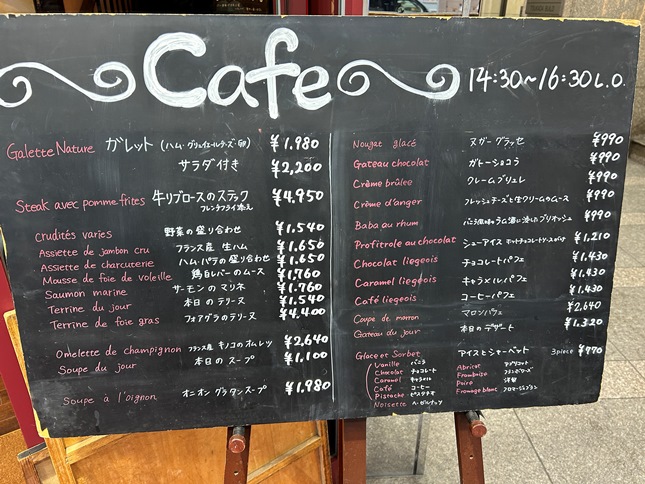 Cafe 14:30~16:30 L.O.
Galette Nature ガレット (ハム・グリュイエールチーズ・卵) ¥1,980
サラダ付き ¥2,200
Steak avec pomme frites 牛リブロースのステック ¥4,950
フレンチフライ添え
crudités varies 野菜の盛り合わせ ¥1,540
Assiette de jambon cru フランス産 生ハム ¥1,650
Assiette de charcuterie ハム・パテの盛り合わせ ¥1,650
Mousse de foie de voleille 鶏白レバーのムース ¥1,760
Saumon marine サーモンのマリネ ¥1,760
Terrine du jour 本日のテリーヌ ¥1,540
Terrine de foie gras フォアグラのテリーヌ ¥4,400
Omelette de champignon フランス産 キノコのオムレツ ¥2,640
Soupe du jour 本日のスープ ¥1,100
Soupe à l'oignon オニオングラタンスープ ¥1,980
Nougat glacé ヌガーグラッセ ¥990
Gateau chocolat ガトーショコラ ¥990
Crème brûlee クレームブリュレ ¥990
Crème d'anger フレッシュチーズと生クリームのムース ¥990
Baba au rhum バニラ風味のラム酒に漬したブリオッシュ ¥990
Profitrole au chocolat シューアイス ホットチョコレートソースがけ ¥1,210
Chocolat liegeois チョコレートパフェ ¥1,430
Caramel liegeois キャラメルパフェ ¥1,430
Café liegeois コーヒーパフェ ¥1,430
Coupe de marron マロンパフェ ¥2,640
Gateau du jour 本日のデザート ¥1,320
Glace et Sorbet アイスとシャーベット 3piece ¥770
Vanille バニラ Abricot アプリコット
Chocolat チョコレート Framboise フランボワーズ
Caramel キャラメル Poire 洋梨
Café コーヒー Fromage blanc フロマージュブラン
Pistache ピスタチオ
Noisette ヘーゼルナッツ